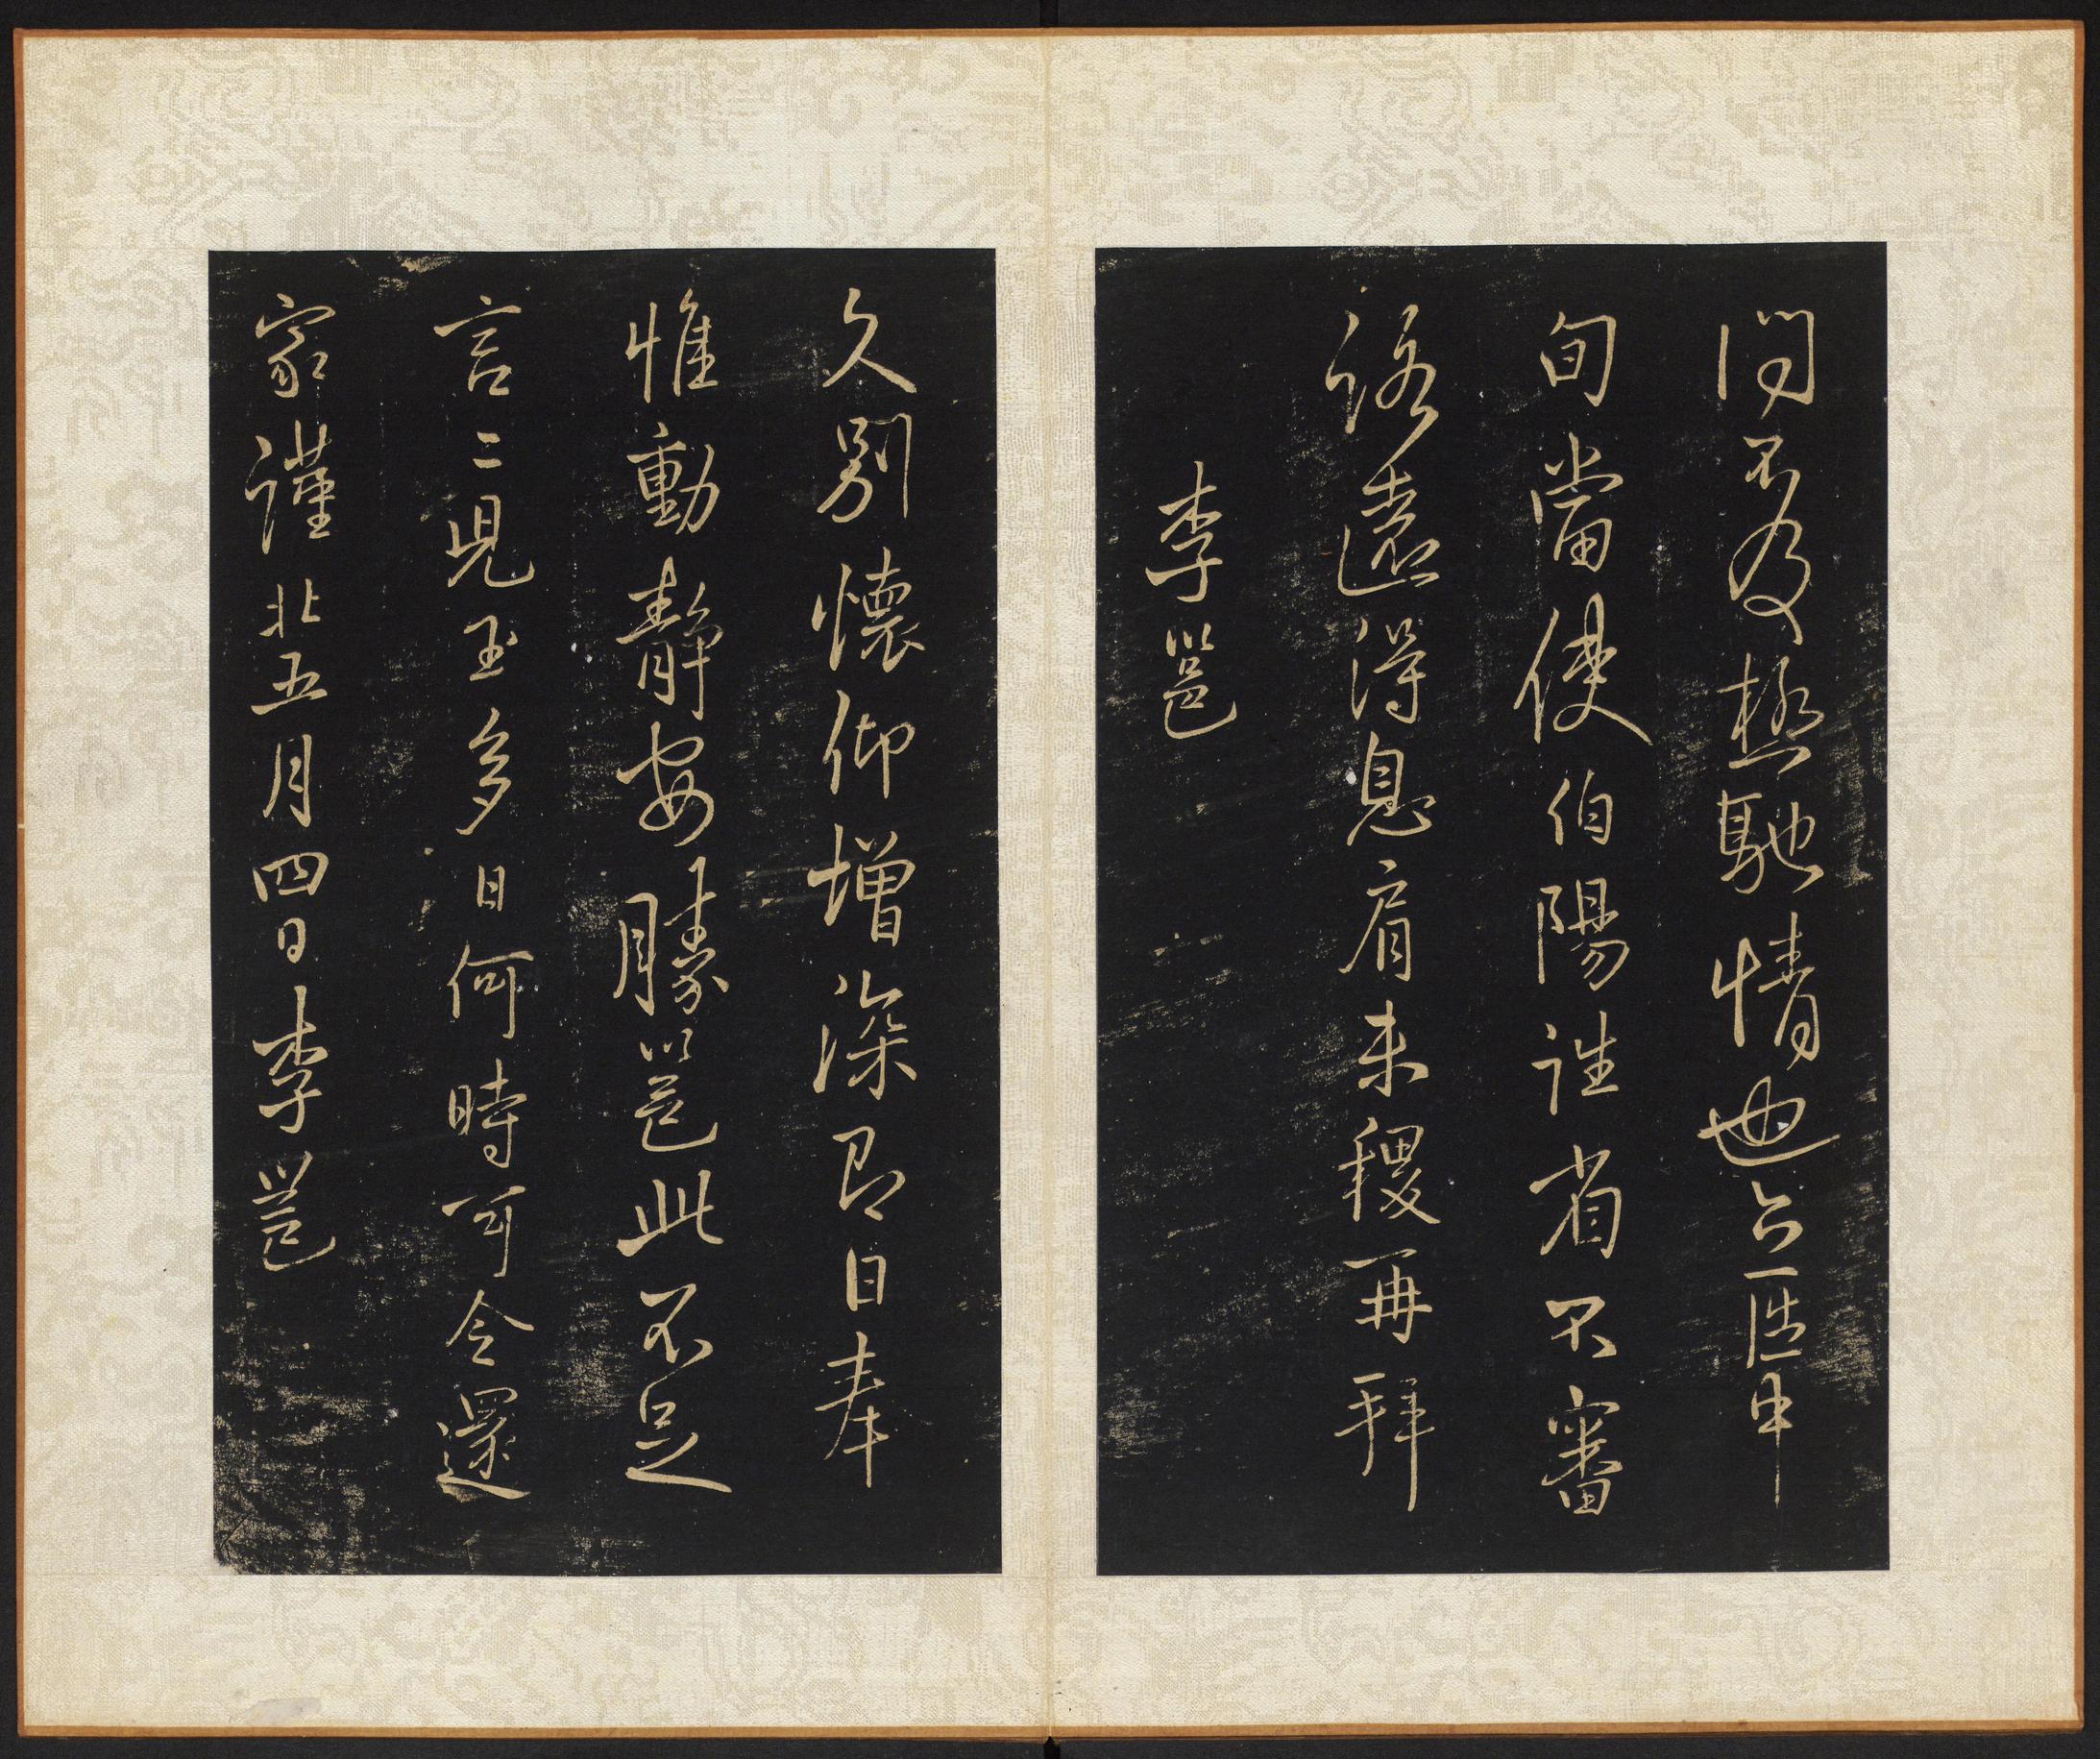 問不及極馳情也中
旬當使伯陽誰省不審
遠得息肩未稷再拜
李邕
久別懷仰增深即日奉
惟動靜安勝邕此不足
言二兒至多日何時可令還
家謹此五月四日李邕